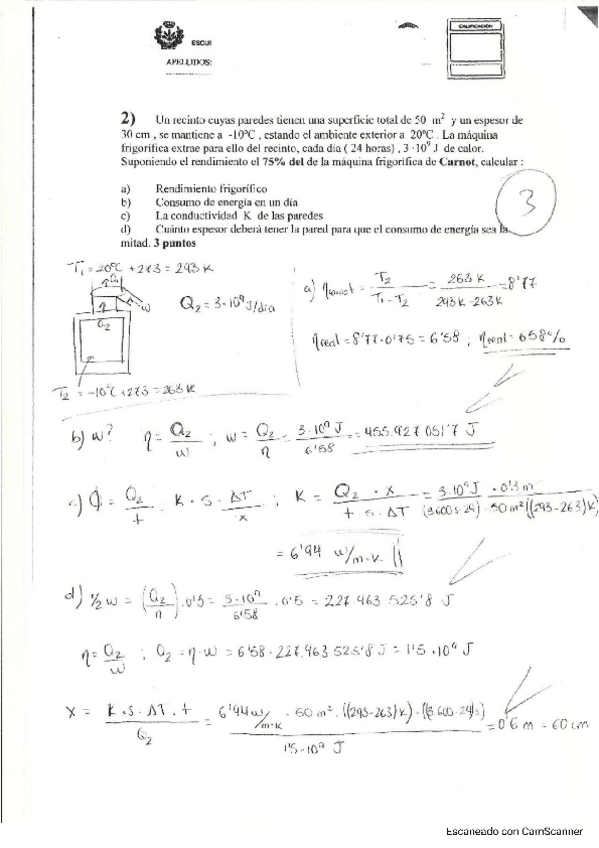 ESCUE
APELLIDOS:
CALIFICACIÓN
2) Un recinto cuyas paredes tienen una superficie total de 50 m² y un espesor de
30 cm , se mantiene a -10ºC , estando el ambiente exterior a 20ºC . La máquina
frigorífica extrae para ello del recinto, cada día ( 24 horas) , 3 ·10⁹ J de calor.
Suponiendo el rendimiento el 75% del de la máquina frigorífica de Carnot, calcular :
a) Rendimiento frigorífico
b) Consumo de energía en un día
c) La conductividad K de las paredes
d) Cuánto espesor deberá tener la pared para que el consumo de energía sea la
mitad. 3 puntos
3
T₁ = 20ºC + 273 = 293 K
Q₂ = 3·10⁹ J/dia
w
Q₂
T₂ = -10ºC + 273 = 263 K
a) η carnot = T₂ / (T₁ - T₂) = 263 K / (293 K - 263 K) = 8'77
η real = 8'77 · 0'75 = 6'58 ; η real = 658%
b) w? η = Q₂/w ; w = Q₂/η = 3·10⁹ J / 6'58 = 455.927.051'7 J
c) Φ = Q₂/t = K·S·ΔT/x ; K = Q₂ · x / (t · S · ΔT) = 3·10⁹ J · 0'3 m / ((3600 s·24) · 50 m² ((293-263) K)
= 6'94 w/m·K
d) 1/2 w = (Q₂/η) · 0'5 = 3·10⁹/6'58 · 0'5 = 227.963.525'8 J
η = Q₂/w ; Q₂ = η · w = 6'58 · 227.963.525'8 J = 1'5 · 10⁹ J
x = K·S·ΔT·t / Q₂ = 6'94 w/m·K · 50 m² · ((293-263) K) · ((3.600·24) s) / 1'5·10⁹ J = 0'6 m = 60 cm
Escaneado con CamScanner